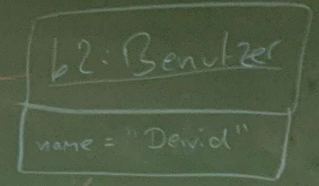 b2: Benutzer
name = "David"